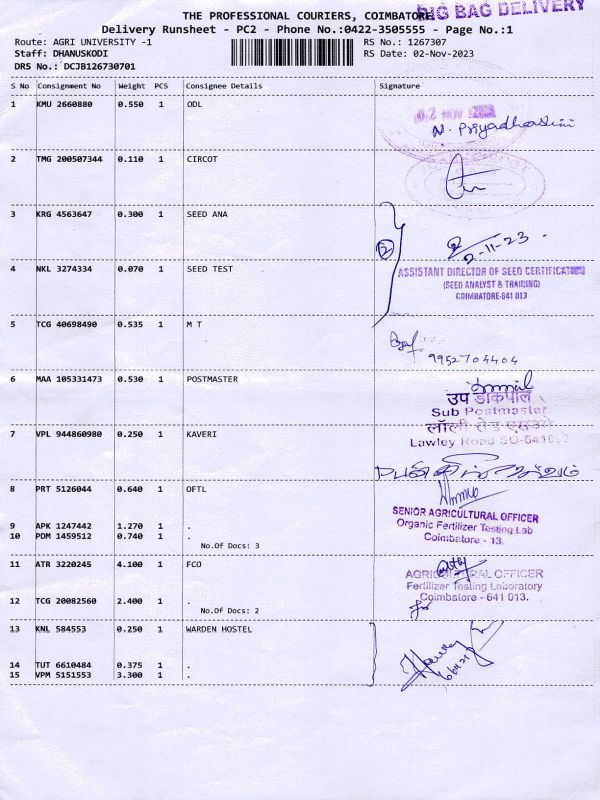 BIG BAG DELIVERY
THE PROFESSIONAL COURIERS, COIMBATORE
Delivery Runsheet - PC2 - Phone No.:0422-3505555 - Page No.:1
Route: AGRI UNIVERSITY -1 RS No.: 1267307
Staff: DHANUSKODI RS Date: 02-Nov-2023
DRS No.: DCJB126730701
S No Consignment No Weight PCS Consignee Details Signature
1 KMU 2660880 0.550 1 ODL
02 NOV
N. Priyadharshini
2 TMG 200507344 0.110 1 CIRCOT
3 KRG 4563647 0.300 1 SEED ANA
2
2-11-23
4 NKL 3274334 0.070 1 SEED TEST
ASSISTANT DIRECTOR OF SEED CERTIFICATION
(SEED ANALYST & TRAINING)
COIMBATORE-641 013
5 TCG 40698490 0.535 1 M T
9952704404
6 MAA 105331473 0.530 1 POSTMASTER
उप डाकपाल
Sub Postmaster
लॉली रोड
Lawley Road SO-6410
7 VPL 944860980 0.250 1 KAVERI
8 PRT 5126044 0.640 1 OFTL
SENIOR AGRICULTURAL OFFICER
Organic Fertilizer Testing Lab
Coimbatore - 13.
9 APK 1247442 1.270 1 .
10 PDM 1459512 0.740 1 .
No.Of Docs: 3
11 ATR 3220245 4.100 1 FCO
AGRICULTURAL OFFICER
Fertilizer Testing Laboratory
Coimbatore - 641 013.
12 TCG 20082560 2.400 1 .
No.Of Docs: 2
13 KNL 584553 0.250 1 WARDEN HOSTEL
14 TUT 6610484 0.375 1 .
15 VPM 5151553 3.300 1 .